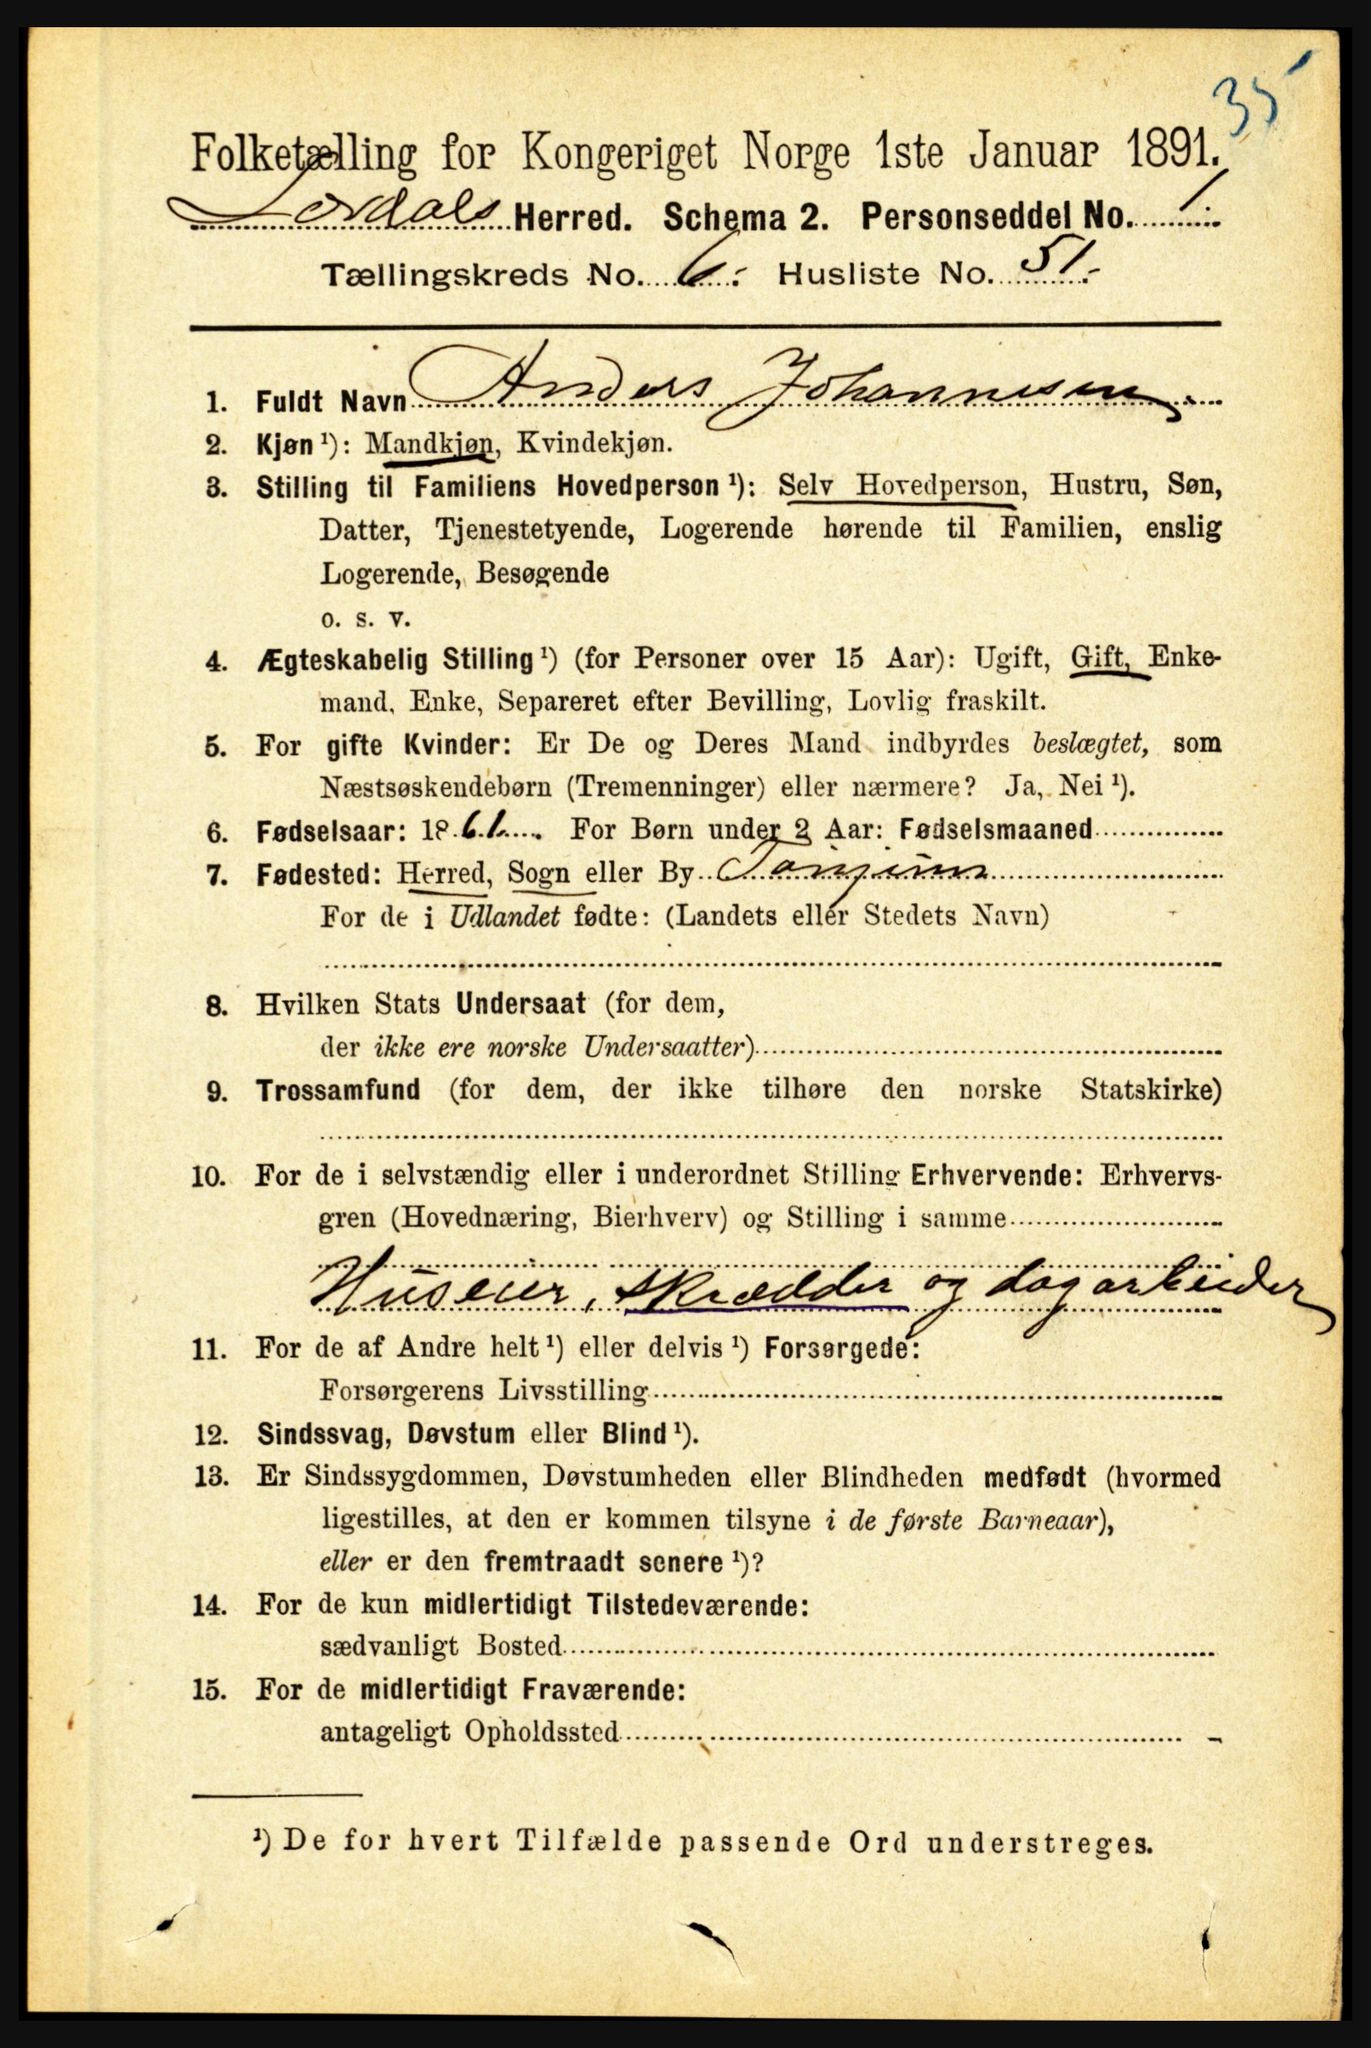 35
Folketælling for Kongeriget Norge 1ste Januar 1891.
Lærdals Herred. Schema 2. Personseddel No. 1.
Tællingskreds No. 6. Husliste No. 51.
1. Fuldt Navn Anders Johannesen.
2. Kjøn¹): Mandkjøn, Kvindekjøn.
3. Stilling til Familiens Hovedperson¹): Selv Hovedperson, Hustru, Søn,
Datter, Tjenestetyende, Logerende hørende til Familien, enslig
Logerende, Besøgende
o. s. v.
4. Ægteskabelig Stilling¹) (for Personer over 15 Aar): Ugift, Gift, Enke-
mand, Enke, Separeret efter Bevilling, Lovlig fraskilt.
5. For gifte Kvinder: Er De og Deres Mand indbyrdes beslægtet, som
Næstsøskendebørn (Tremenninger) eller nærmere? Ja, Nei¹).
6. Fødselsaar: 1861. For Børn under 2 Aar: Fødselsmaaned
7. Fødested: Herred, Sogn eller By Tønjum
For de i Udlandet fødte: (Landets eller Stedets Navn)
8. Hvilken Stats Undersaat (for dem,
der ikke ere norske Undersaatter)
9. Trossamfund (for dem, der ikke tilhøre den norske Statskirke)
10. For de i selvstændig eller i underordnet Stilling Erhvervende: Erhvervs-
gren (Hovednæring, Bierhverv) og Stilling i samme
Huseier, skrædder og dagarbeider
11. For de af Andre helt¹) eller delvis¹) Forsørgede:
Forsørgerens Livsstilling
12. Sindssvag, Døvstum eller Blind¹).
13. Er Sindssygdommen, Døvstumheden eller Blindheden medfødt (hvormed
ligestilles, at den er kommen tilsyne i de første Barneaar),
eller er den fremtraadt senere¹)?
14. For de kun midlertidigt Tilstedeværende:
sædvanligt Bosted
15. For de midlertidigt Fraværende:
antageligt Opholdssted
¹) De for hvert Tilfælde passende Ord understreges.